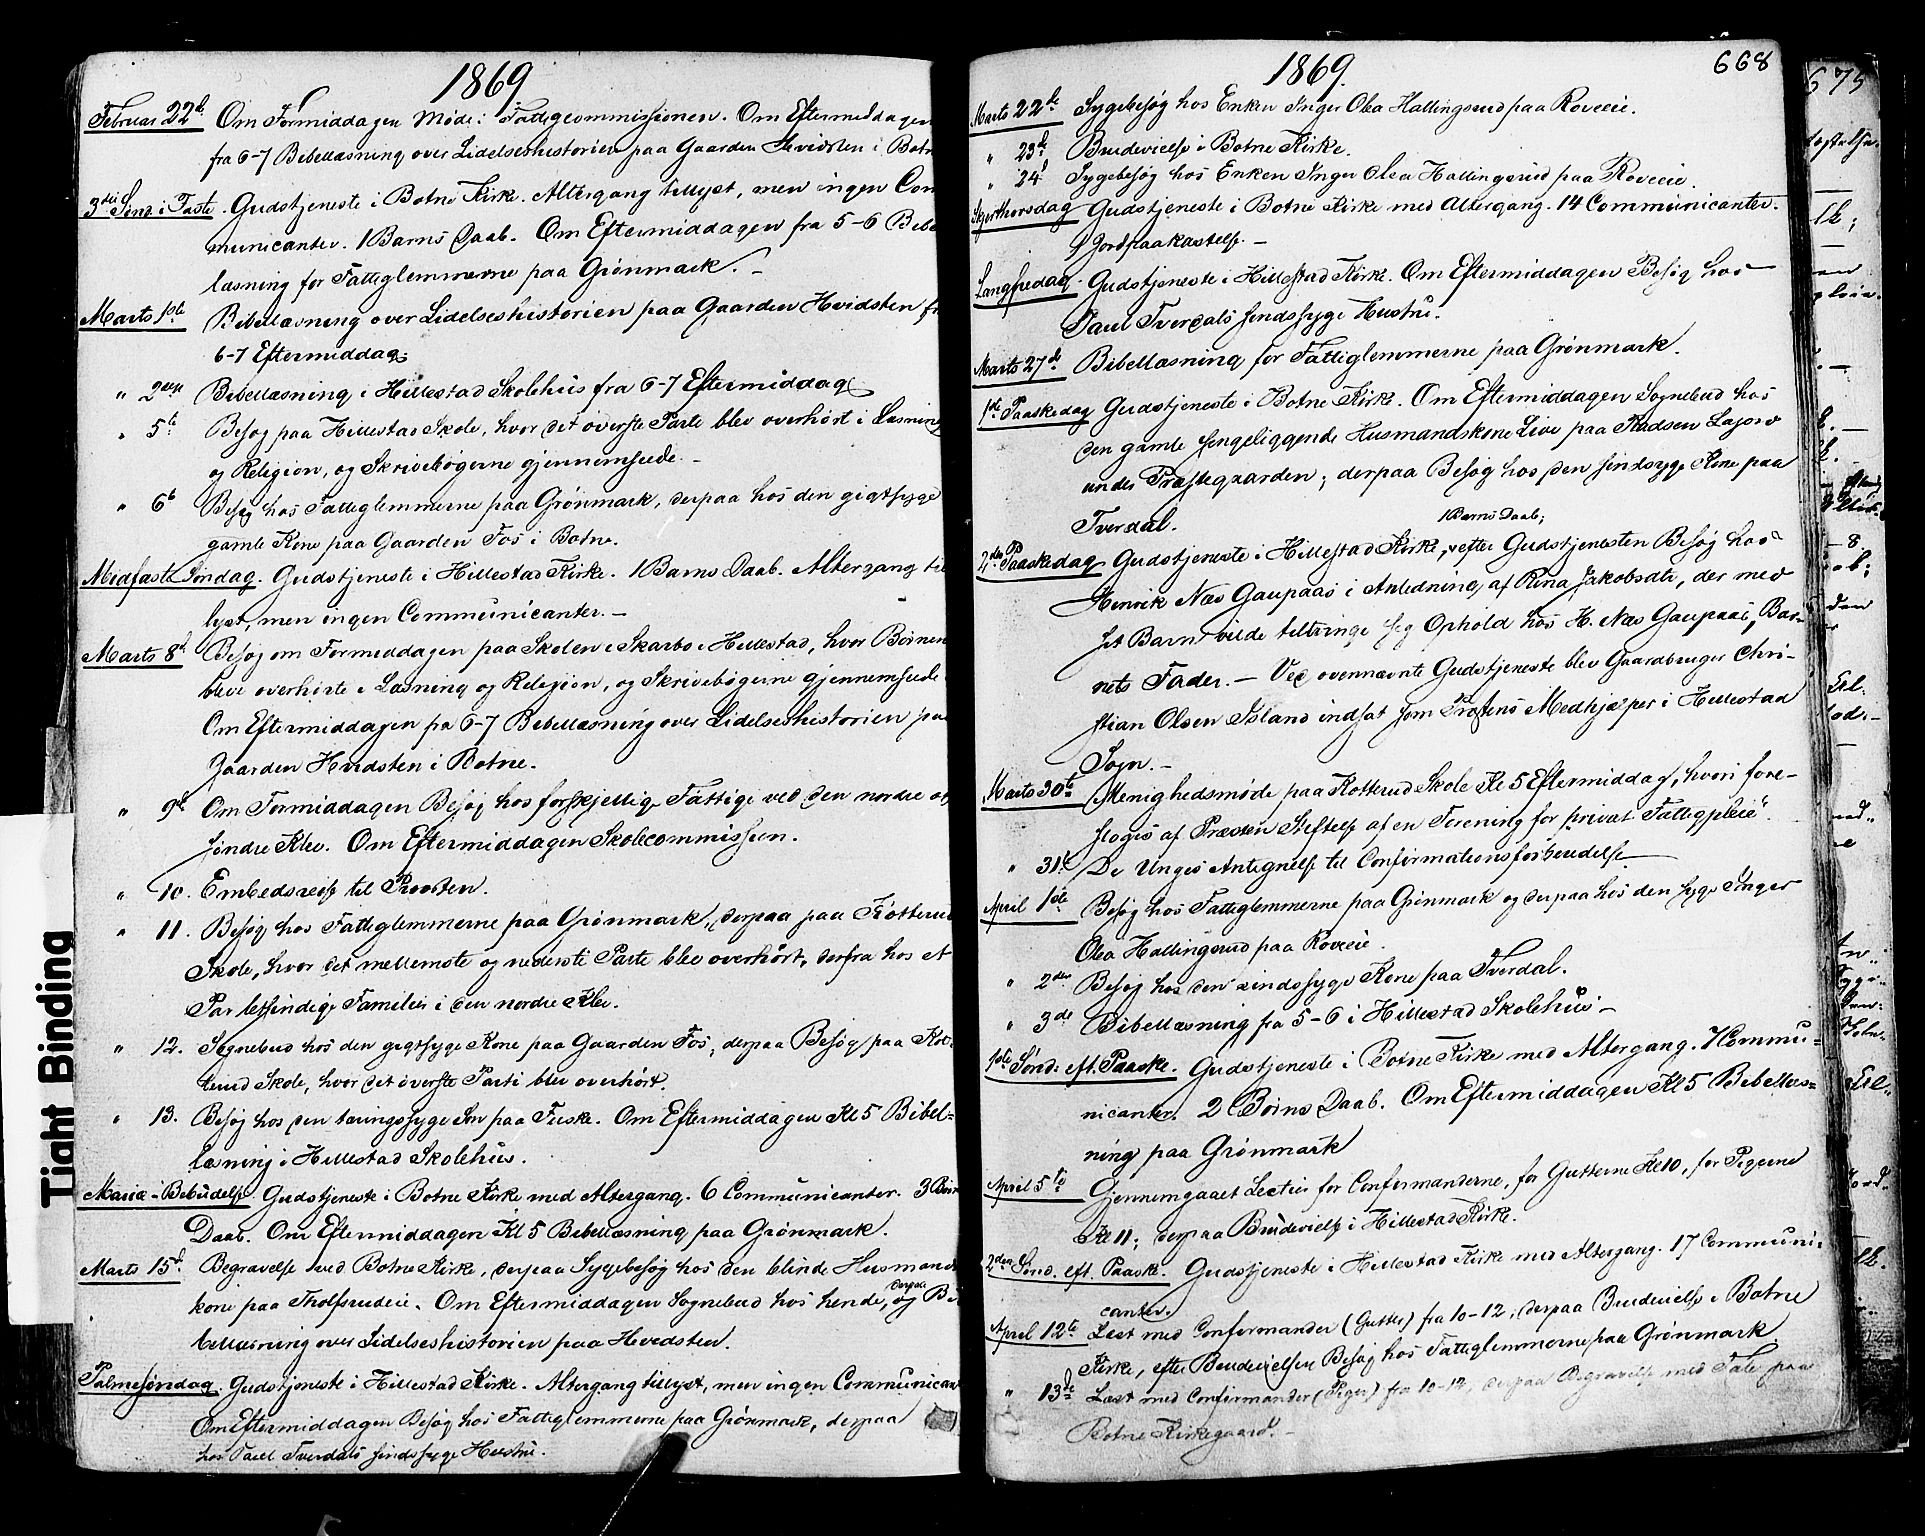 1869
Februar 22d Om Formiddagen Møde i Fattigcommissionen. Om Eftermiddagen
fra 6-7 Bibellæsning over Lidelseshistorien paa Gaarden Hvidsten i Botne
3die Sønd. i Faste. Gudstjeneste i Botne Kirke. Altergang tillyst, men ingen Com
municanter. 1 Barns Daab. Om Eftermiddagen fra 5-6 Bibel
læsning for Fattiglemmerne paa Grønmark. -
Marts 1ste Bibellæsning over Lidelseshistorien paa Gaarden Hvidsten fr
6-7 Eftermiddag.
" 2den Bibellæsning i Hillestad Skolehus fra 6-7 Eftermiddag
" 5te Besøg paa Hillestad Skole, hvor det øverste Parti blev overhørt i Læsning
og Religion, og Skrivebøgerne gjennemseede. -
" 6te Besøg hos Fattiglemmerne paa Grønmark, derpaa hos den gigtsyge
gamle Kone paa Gaarden Fos i Botne.
Midfaste Søndag. Gudstjeneste i Hillestad Kirke. 1 Barns Daab. Altergang til
lyst, men ingen Communicanter. -
Marts 8d Besøg om Formiddagen paa Skolen i Skarbo i Hillestad, hvor Børnene
bleve overhørte i Læsning og Religion, og Skrivebøgerne gjennemseede
Om Eftermiddagen fra 6-7 Bibellæsning over Lidelseshistorien paa
Gaarden Hvidsten i Botne.
" 9de Om Formiddagen Besøg hos forskjellige Fattige ved den nordre og
søndre Klev. Om Eftermiddagen Skolecommission.
" 10. Embedsreise til Provsten.
" 11. Besøg hos Fattiglemmerne paa Grønmark, derpaa paa Kotterud
Skole, hvor det mellemste og nederste Parti blev overhørt, derfra hos et
Par letsindige Familier i den nordre Klev.
" 12. Sognebud hos den gigtsyge Kone paa Gaarden Fos, derpaa Besøg paa Kot-
terud Skole, hvor det øverste Parti blev overhørt.
" 13. Besøg hos den tæringssyge Søn paa Fuske. Om Eftermiddagen Kl 5 Bibel=
læsning i Hillestad Skolehus.
Maria-Bebudelse. Gudstjeneste i Botne Kirke med Altergang. 6 Communicanter. 3 Børns
Daab. Om Eftermiddagen Kl 5 Bibellæsning paa Grønmark.
Marts 15d. Begravelse ved Botne Kirke, derpaa Sygebesøg hos den blinde Husmands
kone paa Tholfsrudeie. Om Eftermiddagen Sognebud hos hende, derpaa og Bi
bellæsning over Lidelseshistorien paa Hvidsten.
Palmesøndag. Gudstjeneste i Hillestad Kirke. Altergang tillyst, men ingen Communican
Om Eftermiddagen Besøg hos Fattiglemmerne paa Grønmark, derpaa
hos Paul Tverdals sindssyge Hustru.
1869. 668
Marts 22de Sygebesøg hos Enken Inger Olea Hallingsrud paa Roveeie.
" 23de Brudevielse i Botne Kirke.
" 24d Sygebesøg hos Enken Inger Olea Hallingsrud paa Roveeie.
Skjerthorsdag Gudstjeneste i Botne Kirke med Altergang. 14 Communicanter.
1 Jordpaakastelse. -
Langfredag. Gudstjeneste i Hillestad Kirke. Om Eftermiddagen Besøg hos
Paul Tverdals sindssyge Hustru.
Marts 27de Bibellæsning for Fattiglemmerne paa Grønmark.
1ste Paaskedag Gudstjeneste i Botne Kirke. Om Eftermiddagen Sognebud hos
den gamle sengeliggende Husmandskone Live paa
under Præstegaarden; derpaa Besøg hos den sindssyge Kone paa
Tverdal.
1 Barns Daab;
2den Paaskedag Gudstjeneste i Hillestad Kirke, efter Gudstjenesten Besøg hos
Henrik Næs Gaupaas i Anledning af Rina Jakobsdt, der med
sit Barn vilde tiltvinge sig Ophold hos H. Næs Gaupaas, Bar-
nets Fader. - Ved ovennævnte Gudstjeneste blev Gaardbruger Chri-
stian Olsen Island indsat som Præstens Medhjælper i Hillestad
Sogn. -
Marts 30te Menighedsmøde paa Kotterud Skole Kl 5 Eftermiddag, hvori fore-
sloges af Præsten Stiftelse af en Forening for "privat Fattigpleie".
" 31te De Unges Antegnelse til Confirmationsforberedelse
April 1ste Besøg hos Fattiglemmerne paa Grønmark og derpaa hos den syge Inger
Olea Hallingsrud paa Roveeie.
" 2den Besøg hos den sindssyge Kone paa Tverdal.
" 3de Bibellæsning fra 5-6 i Hillestad Skolehus -
1ste Sønd. eft. Paaske. Gudstjeneste i Botne Kirke med Altergang. Commu-
nicanter. 2 Børns Daab. Om Eftermiddagen Kl 5 Bibellæs=
ning paa Grønmark
April 5te Gjennemgaaet Lectier for Confirmanderne, for Gutterne Kl 10, for Pigerne
Kl 11; derpaa Brudevielse i Hillestad Kirke.
2den Sønd. eft. Paaske. Gudstjeneste i Hillestad Kirke med Altergang. 17 Communi-
canter.
April 12te Læst med Confirmander (Gutter) fra 10-12, derpaa Brudevielse i Botne
Kirke, efter Brudevielsen Besøg hos Fattiglemmerne paa Grønmark.
" 13de Læst med Confirmander (Piger) fra 10-12, derpaa Begravelse med Tale paa
Botne Kirkegaard. -
675
Tight Binding